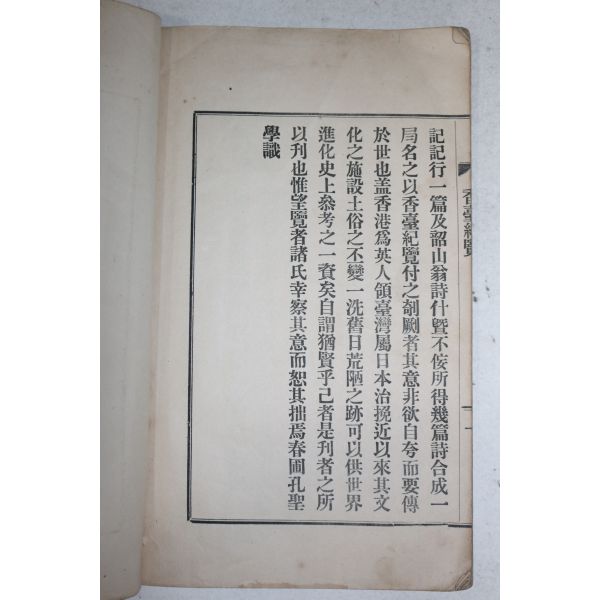 記記行一篇及韶山翁詩什曁不侫所得幾篇詩合成一
局名之以香臺紀覽付之剞劂者其意非欲自夸而要傳
於世也盖香港爲英人領臺灣屬日本治挽近以來其文
化之施設土俗之丕變一洗舊日荒陋之跡可以供世界
進化史上叅考之一資矣自謂猶賢乎己者是刊者之所
以刊也惟望覽者諸氏幸察其意而恕其拙焉春圃孔聖
學識
香臺紀覽